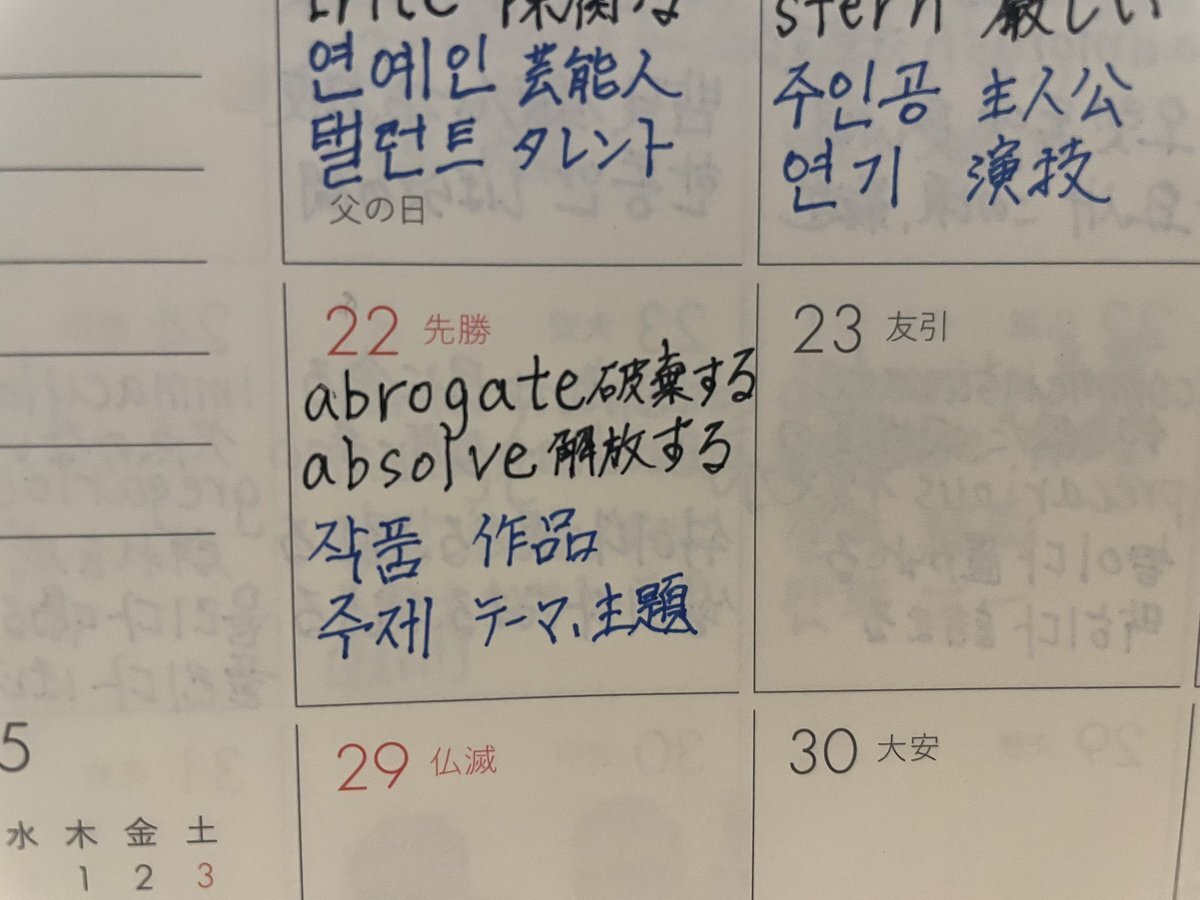 trite 陳腐な
연예인 芸能人
탤런트 タレント
父の日
stern 厳しい
주인공 主人公
연기 演技
22 先勝
abrogate 破棄する
absolve 解放する
작품 作品
주제 テーマ、主題
23 友引
29 仏滅
30 大安
5
水 木 金 土
1 2 3